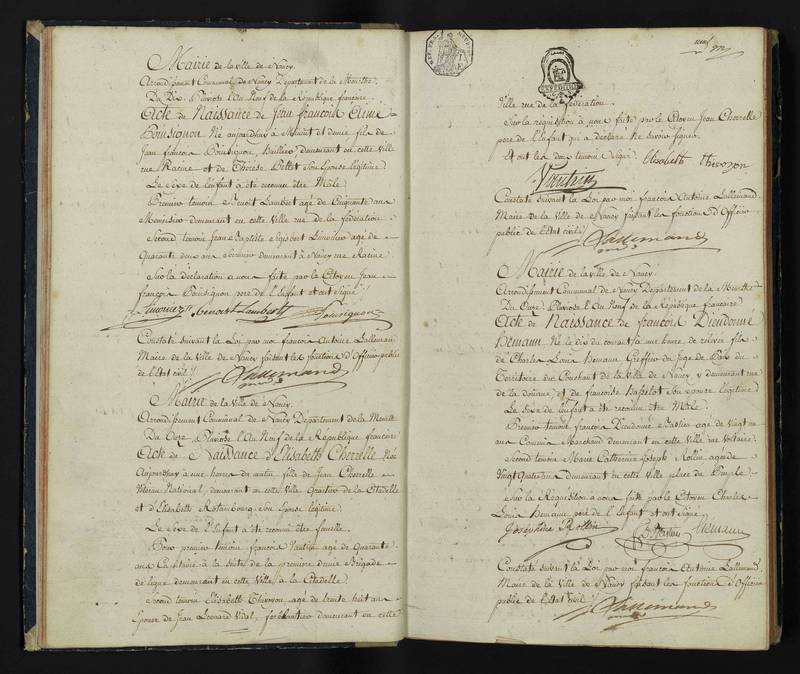 Mairie de la ville de Nancy.
Arrondissement Communal de Nancy Département de la Meurthe
Du Dix Pluviose l'An Neuf de la République française
Acte de Naissance de Jean françois Aimé
Né aujourdhuy à Minuit et demie fils de
Jean françois demeurant en cette ville
rue Racine et de Thérese Billet son Epouse légitime.
Le Sexe de l'enfant a été reconnu être Mâle
Premier temoin Benoit Lambert agé de Cinquante ans
Menuisier demeurant en cette Ville rue de la fédération
Second temoin Jean Baptiste Sigisbert Limonier agé de
Quarante deux ans demeurant à Nancy rue Racine.
Sur la déclaration a nous faite par le Citoyen Jean
françois pere de l'Enfant et ont Signé
Benoit Lambert
Constaté suivant la Loi par moi françois Antoine Lallemand
Maire de la Ville de Nancy faisant les fonctions d'Officier public
de l'état civil
Lallemand
Mairie de la ville de Nancy.
Arrondissement Communal de Nancy Département de la Meurthe
Du Onze Pluviose l'An Neuf de la République francaise
Acte de Naissance d'Elisabeth Née
Aujourdhuy à une heure du matin fille de Jean
Vétéran National, demeurant en cette Ville Quartier de la Citadelle
et d'Elisabeth son Epouse légitime.
Le Sexe de l'Enfant a été reconnu être femelle.
Pour premier temoin françois Vautrin agé de Quarante
ans Capitaine à la suite de la premiere demie Brigade
de ligne demeurant en cette Ville à la Citadelle
Second temoin Elisabeth agé de trente huit ans
Epouse de Jean Leonard Vidal, ferblantier demeurant en cette
neuf
EXPÉDITION
Ville rue de la fédération.
Sur la réquisition à nous faite par le Citoyen Jean
pere de l'Enfant qui a déclaré ne savoir Signer
Et ont les deux temoins Signé. Elisabeth
Vautrin
Constaté suivant la Loi par moi françois Antoine Lallemand
Maire de la Ville de Nancy faisant les fonctions d'Officier
public de l'Etat civil
Lallemand
Mairie de la ville de Nancy.
Arrondissement Communal de Nancy Département de la Meurthe
Du Onze Pluviose l'An Neuf de la République francaise
Acte de Naissance de françois Dieudonné
Né le dix du courant à une heure de relevée fils
de Charles Louis Greffier du Juge de Paix du
Territoire du Couchant de la Ville de Nancy y demeurant rue
de la Douane et de françoise son epouse légitime
Le Sexe de l'enfant a été reconnu être Mâle.
Premier temoin françois Dieudonné agé de Vingt un
ans Commis Marchand demeurant en cette Ville rue Voltaire.
Second temoin Marie Catherine Joseph Rollin agée de
Vingt Quatre ans demeurant en cette Ville place du Peuple.
Sur la Réquisition a nous faite par le Citoyen Charles
Louis pere de l'Enfant et ont Signé
Rollin
Constaté suivant la Loi par moi françois Antoine Lallemand
Maire de la Ville de Nancy faisant les fonctions d'Officier
public de l'Etat civil
Lallemand